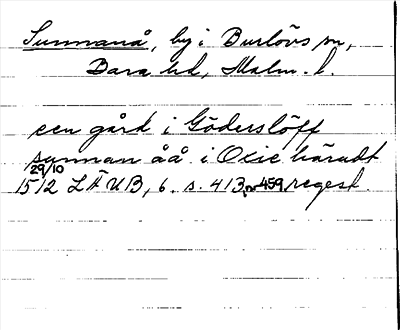 Sunnanå, by i Burlövs sn,
Bara hd, Malm. l.
een gård i Göderslöff
sunnan åå i Oxie häradt
29/10
1512 LÄUB, 6. s. 413, nr 459, regest.